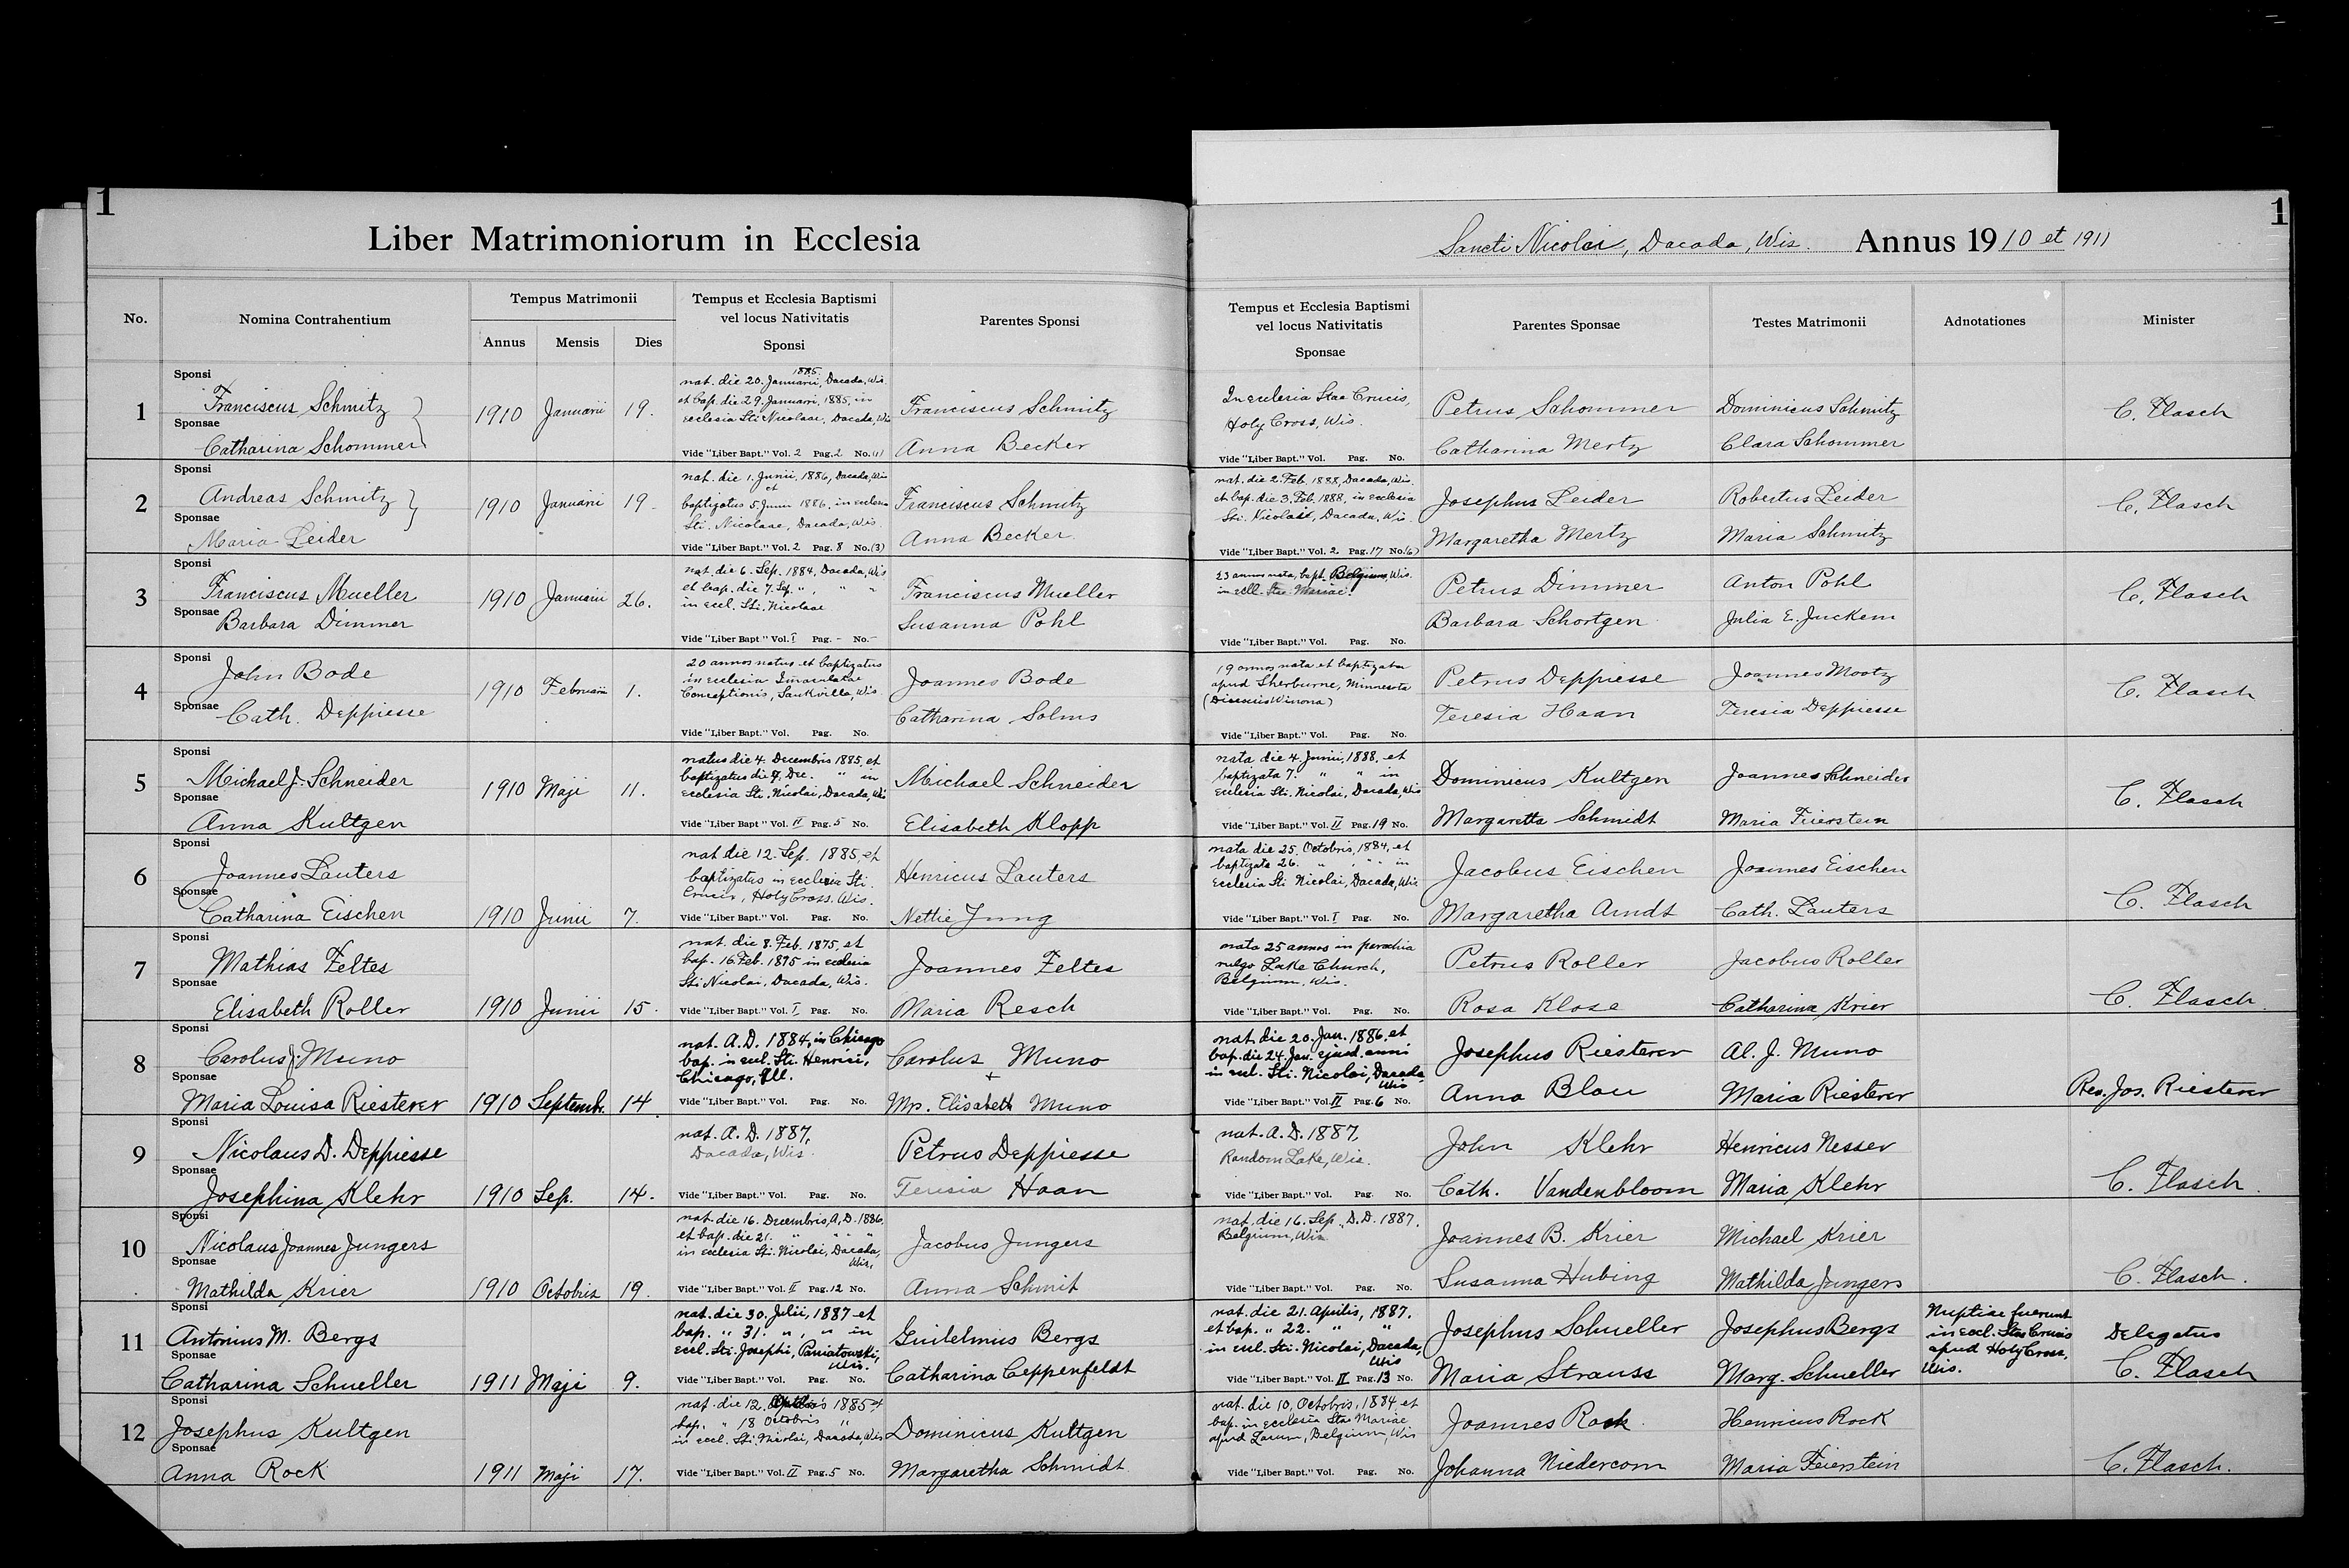 1
1
Liber Matrimoniorum in Ecclesia
Sancti Nicolai, Dacada, Wis. Annus 1910 et 1911
No.
Nomina Contrahentium
Tempus Matrimonii
Annus Mensis Dies
Tempus et Ecclesia Baptismi
vel locus Nativitatis
Sponsi
Parentes Sponsi
Tempus et Ecclesia Baptismi
vel locus Nativitatis
Sponsae
Parentes Sponsae
Testes Matrimonii
Adnotationes
Minister
1
Sponsi
Franciscus Schmitz
Sponsae
Catharina Schommer
1910 Januarii 19.
1885
nat. die 20. Januarii, Dacada, Wis
et bap. die 29. Januari, 1885, in
ecclesia Sti Nicolaae, Dacada, Wis
Vide "Liber Bapt." Vol. 2 Pag. 2 No. (1)
Franciscus Schmitz
Anna Becker
In ecclesia Stae Crucis,
Holy Cross, Wis.
Vide "Liber Bapt." Vol. Pag. No.
Petrus Schommer
Catharina Mertz
Dominicus Schmitz
Clara Schommer
C. Flasch
2
Sponsi
Andreas Schmitz
Sponsae
Maria Leider
1910 Januarii 19.
nat. die 1. Junii, 1886, Dacada, Wis
et
baptizatus 5. Junii 1886, in ecclesia
Sti. Nicolaae, Dacada, Wis.
Vide "Liber Bapt." Vol. 2 Pag. 8 No. (3)
Franciscus Schmitz
Anna Becker.
nat. die 2. Feb. 1888, Dacada, Wis.
et bap. die 3. Feb. 1888, in ecclesia
Sti. Nicolai, Dacada, Wis.
Vide "Liber Bapt." Vol. 2 Pag. 17 No. (6)
Josephus Leider
Margaretha Mertz
Robertus Leider
Maria Schmitz
C. Flasch
3
Sponsi
Franciscus Mueller
Sponsae
Barbara Dimmer
1910 Januarii 26.
nat. die 6. Sep. 1884, Dacada, Wis
et bap. die 7. Sep. ", " "
in eccl. Sti. Nicolaae
Vide "Liber Bapt." Vol. I Pag. - No. -
Franciscus Mueller
Susanna Pohl
23 annos nata, bapt. Belgium, Wis.
in eccl. Stae Mariae.
Vide "Liber Bapt." Vol. Pag. No.
Petrus Dimmer
Barbara Schortgen
Anton Pohl
Julia E. Juckem
C. Flasch
4
Sponsi
John Bode
Sponsae
Cath. Deppiesse
1910 Februarii 1.
20 annos natus et baptizatus
in ecclesia Imaculatae
Conceptionis, Saukville, Wis.
Vide "Liber Bapt." Vol. Pag. No.
Joannes Bode
Catharina Solms
19 annos nata et baptizata
apud Sherburne, Minnesota
(Diocesis Winona)
Vide "Liber Bapt." Vol. Pag. No.
Petrus Deppiesse
Teresia Haan
Joannes Mootz
Teresia Deppiesse
C. Flasch
5
Sponsi
Michael J. Schneider
Sponsae
Anna Kultgen
1910 Maji 11.
natus die 4. Decembris 1885, et
baptizatus die 9. Dec. " in
ecclesia Sti. Nicolai, Dacada, Wis
Vide "Liber Bapt." Vol. II Pag. 5 No.
Michael Schneider
Elisabeth Klopp
nata die 4. Junii, 1888, et
baptizata 7. " " in
ecclesia Sti. Nicolai, Dacada, Wis
Vide "Liber Bapt." Vol. II Pag. 19 No.
Dominicus Kultgen
Margaretta Schmidt
Joannes Schneider
Maria Feierstein
C. Flasch
6
Sponsi
Joannes Lauters
Sponsae
Catharina Eischen
1910 Junii 7.
nat die 12. Sep. 1885, et
baptizatus in ecclesia Sti.
Crucis, Holy Cross, Wis.
Vide "Liber Bapt." Vol. Pag. No.
Henricus Lauters
Nettie Jung
nata die 25. Octobris, 1884, et
baptizata 26. " , " " in
Ecclesia Sti Nicolai, Dacada, Wis
Vide "Liber Bapt." Vol. I Pag. No.
Jacobus Eischen
Margaretha Arndt
Joannes Eischen
Cath. Lauters
C. Flasch
7
Sponsi
Mathias Feltes
Sponsae
Elisabeth Roller
1910 Junii 15.
nat. die 8. Feb. 1875, et
bap. 16. Feb. 1875 in ecclesia
Sti Nicolai, Dacada, Wis.
Vide "Liber Bapt." Vol. I Pag. No.
Joannes Feltes
Maria Resch
nata 25 annos in parochia
vulgo Lake Church,
Belgium, Wis.
Vide "Liber Bapt." Vol. Pag. No.
Petrus Roller
Rosa Klose
Jacobus Roller
Catharina Krier
C. Flasch
8
Sponsi
Carolus J. Muno
Sponsae
Maria Louisa Riesterer
1910 Septembr. 14.
nat. A.D. 1884, in Chicago
bap. in eccl. Sti. Henrici,
Chicago, Ill.
Vide "Liber Bapt." Vol. Pag. No.
Carolus Muno
+
Mrs. Elisabeth Muno
nat. die 20. Jan. 1886, et
bap. die 24. Jan. ejusd. anni
in eccl. Sti. Nicolai, Dacada,
Wis
Vide "Liber Bapt." Vol. II Pag. 6 No.
Josephus Riesterer
Anna Blau
Al. J. Muno
Maria Riesterer
Rev. Jos. Riesterer
9
Sponsi
Nicolaus D. Deppiesse
Sponsae
Josephina Klehr
1910 Sep. 14.
nat. A.D. 1887,
Dacada, Wis.
Vide "Liber Bapt." Vol. Pag. No.
Petrus Deppiesse
Teresia Haan
nat. A.D. 1887,
Random Lake, Wis.
Vide "Liber Bapt." Vol. Pag. No.
John Klehr
Cath. Vandenbloom
Henricus Nesser
Maria Klehr
C. Flasch.
10
Sponsi
Nicolaus Joannes Jungers
Sponsae
Mathilda Krier
1910 Octobris 19.
nat. die 16. Decembris, A.D. 1886,
et bap. die 21. " " " "
in ecclesia Sti. Nicolai, Dacada,
Wis,
Vide "Liber Bapt." Vol. II Pag. 12 No.
Jacobus Jungers
Anna Schmit
nat. die 16. Sep. D.D. 1887.
Belgium, Wis.
Vide "Liber Bapt." Vol. Pag. No.
Joannes B. Krier
Susanna Hubing
Michael Krier
Mathilda Jungers
C. Flasch.
11
Sponsi
Antonius M. Bergs
Sponsae
Catharina Schueller
1911 Maji 9.
nat. die 30. Julii, 1887 et
bap. " 31. " , " in
eccl. Sti. Josephi, Paniatowski,
Wis.
Vide "Liber Bapt." Vol. Pag. No.
Guilelmus Bergs
Catharina Ceppenfeldt
nat. die 21. Aprilis, 1887,
et bap. " 22. " "
in eccl. Sti. Nicolai, Dacada,
Wis
Vide "Liber Bapt." Vol. II Pag. 13 No.
Josephus Schueller
Maria Strauss
Josephus Bergs
Marg. Schueller
Nuptiae fuerunt
in eccl. Stae Crucis
apud Holy Cross,
Wis.
Delegatus
C. Flasch
12
Sponsi
Josephus Kultgen
Sponsae
Anna Rock
1911 Maji 17.
nat. die 12. 1885 et
bap. " 18 Octobris "
in eccl. Sti. Nicolai, Dacada, Wis
Vide "Liber Bapt." Vol. II Pag. 5 No.
Dominicus Kultgen
Margaretha Schmidt
nat. die 10. Octobris, 1884 et
bap. in ecclesia Stae Mariae
apud Lacum, Belgium, Wis
Vide "Liber Bapt." Vol. Pag. No.
Joannes Rock
Johanna Niedercorn
Henricus Rock
Maria Feierstein
C. Flasch.